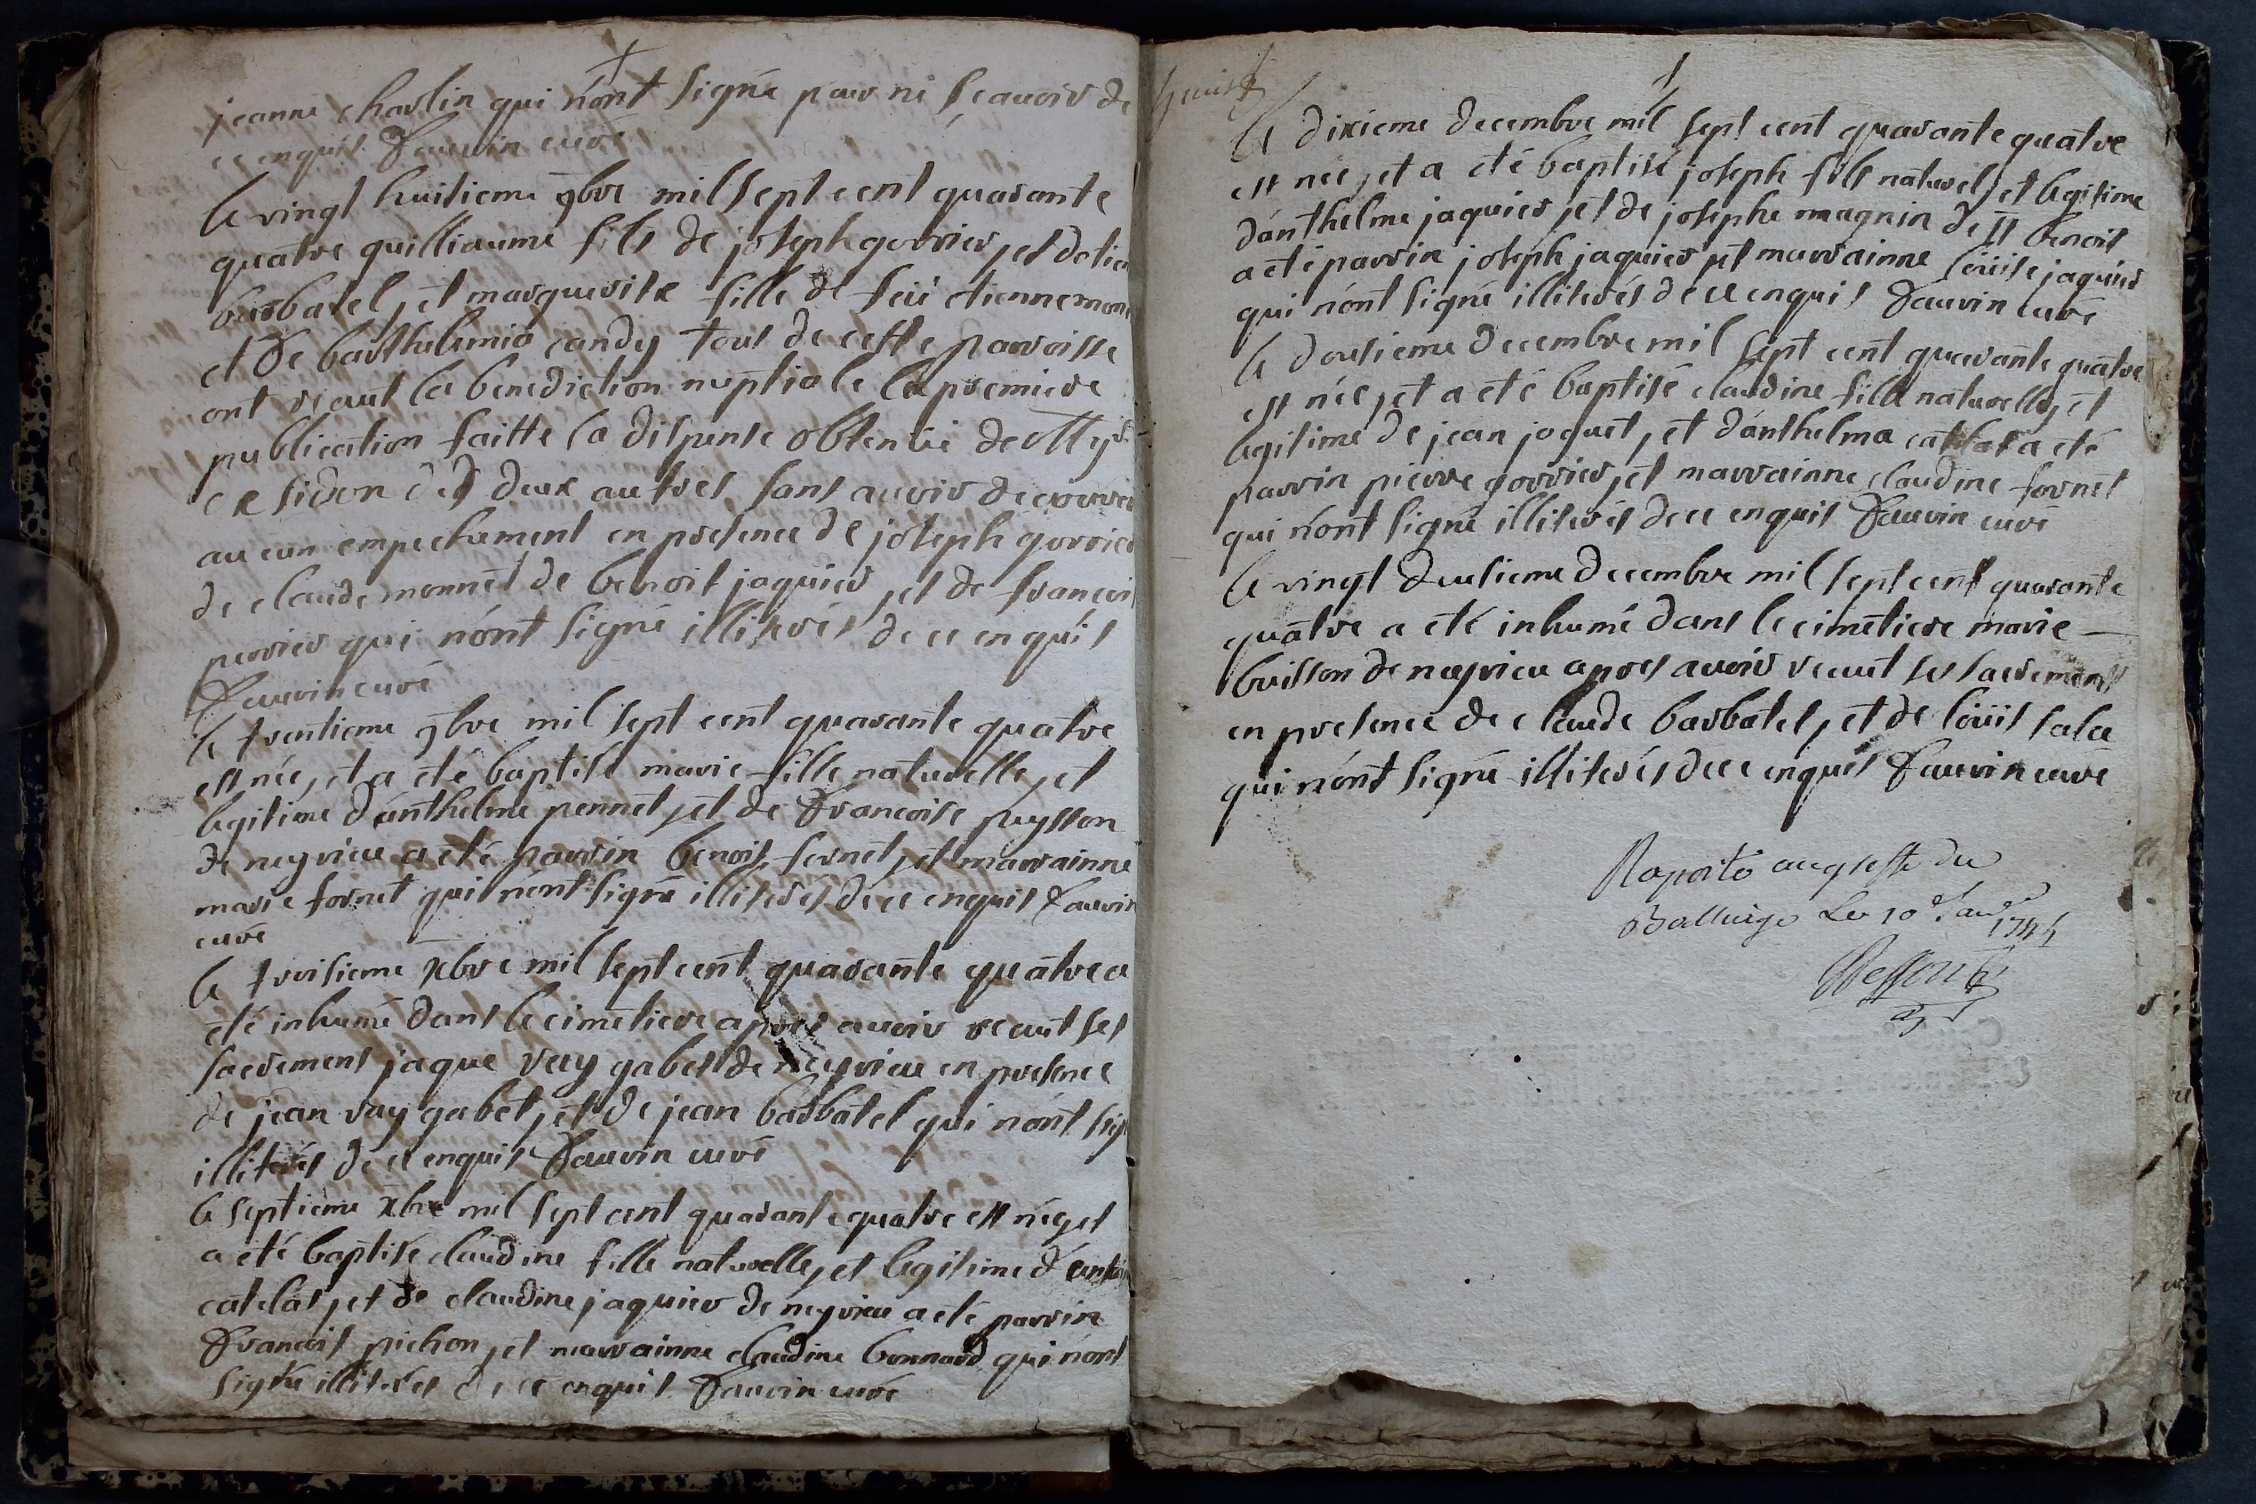 jeanne charlin qui n'ont signé pour ne sçavoir de
ce enquis Fauvin curé
le vingt huitieme 9bre mil sept cent quarante
quatre guilliaume fils de joseph gorrier, et de
barbatel, et marguerite fille de feü etienne
et de barthelemia candy tous de cette parroisse
ont reçeut la benediction nuptiale la premiere
publication faitte la dispense obtenüe de
de sidon des deux autres sans avoir decouvert
aucun empechement en presence de joseph gorrier
de claude monnet de benoit jaquier, et de francois
perrier qui n'ont signé illiterés de ce enquis
Fauvin curé
le trentieme 9bre mil sept cent quarante quatre
est née, et a été baptisé marie fille naturelle, et
legitime d'anthelme pennet, et de Francoise puysson
de neyrieu a eté parrin benoit fornet, et marrainne
marie fornet qui n'ont signé illiterés de ce enquis Fauvin
curé
le troisieme xbre mil sept cent quarante quatre a
été inhumé dans le cimetiere apres avoir receut ses
sacrement jaque vey gabet de neyrieu en presence
de jean vay gabet, et de jean barbatel qui n'ont sig
illiterés de ce enquis Fauvin curé
le septieme xbre mil sept cent quarante quatre est née, et
a été baptisé claudine fille naturelle, et legitime
catelas, et de claudine jaquier de neyrieu a eté parrin
Francois pichon, et marrainne claudine bonnard qui n'ont
signé illiterés de ce enquis Fauvin curé
huit
le dixieme decembre mil sept cent quarante quatre
est née, et a eté baptisé joseph fils naturel, et legitime
d'anthelme jaquier, et de josephe magnin de st benoit
a eté parrin joseph jaquier, et marrainne loüise jaquier
qui n'ont signé illiterés de ce enquis Fauvin curé
le dousieme decembre mil sept cent quarante quatre
est née, et a eté baptisé claudine fille naturelle, et
legitime de jean jaquet, et d'anthelma catelas a eté
parrin pierre gorrier, et marrainne claudine fornet
qui n'ont signé illiterés de ce enquis Fauvin curé
le vingt deusieme decembre mil sept cent quarante
quatre a eté inhumé dans le cimetiere marie
buisson de neyrieu apres avoir receut ses sacrements
en presence de claude barbatel, et de loüis sala
qui n'ont signé illiterés de ce enquis Fauvin curé
Raporté au greffe du
Balliage Le 10e Janv